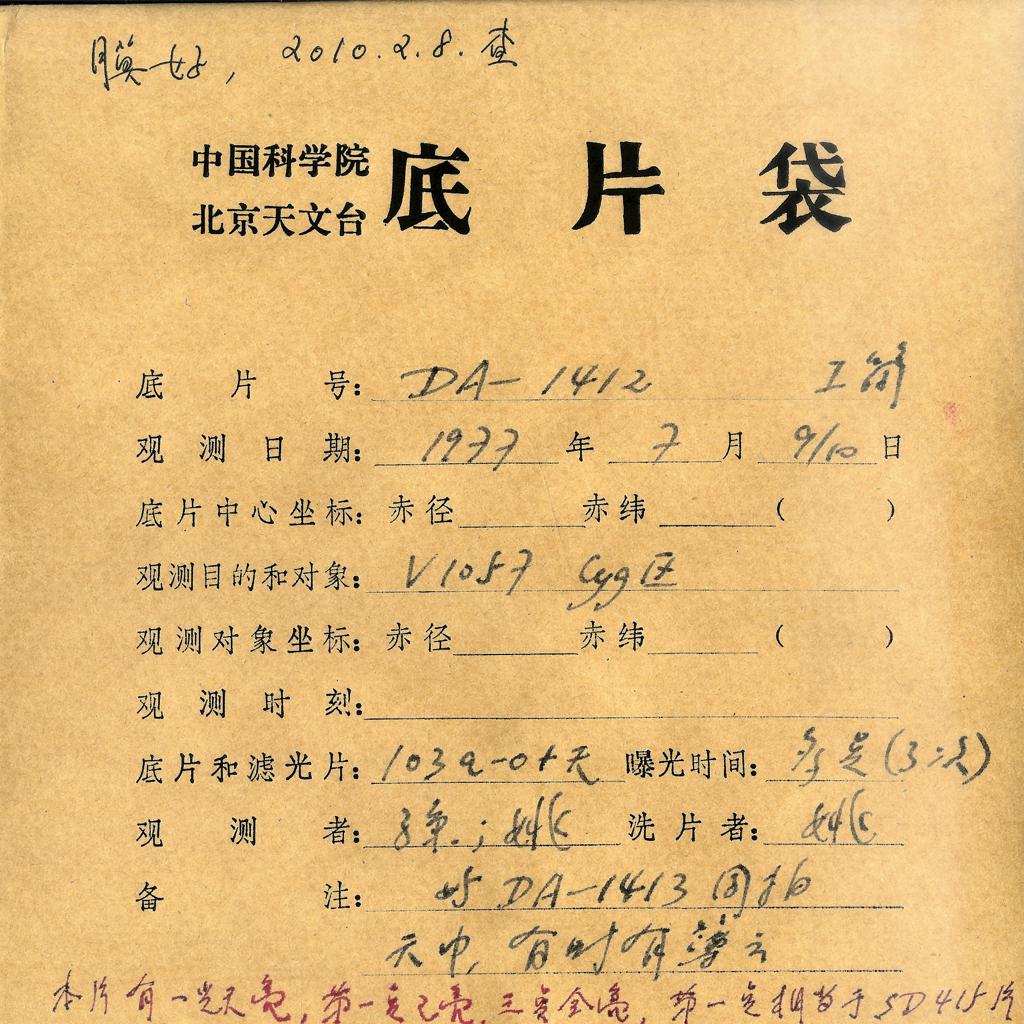 膜好, 2010.2.8.查
中国科学院
北京天文台
底片袋
底片号: DA-1412
观测日期: 1977年7月9/10日
底片中心坐标: 赤径 赤纬 ( )
观测目的和对象: V1057 Cyg区
观测对象坐标: 赤径 赤纬 ( )
观测时刻:
底片和滤光片: 103a-O+天 曝光时间: (3次)
观测者: 姚 洗片者: 姚
备注: 与DA-1413同拍
天中, 有时有薄云
本片有一 天亮, 第一 已亮, 三 全亮, 第一 相当于SD415片